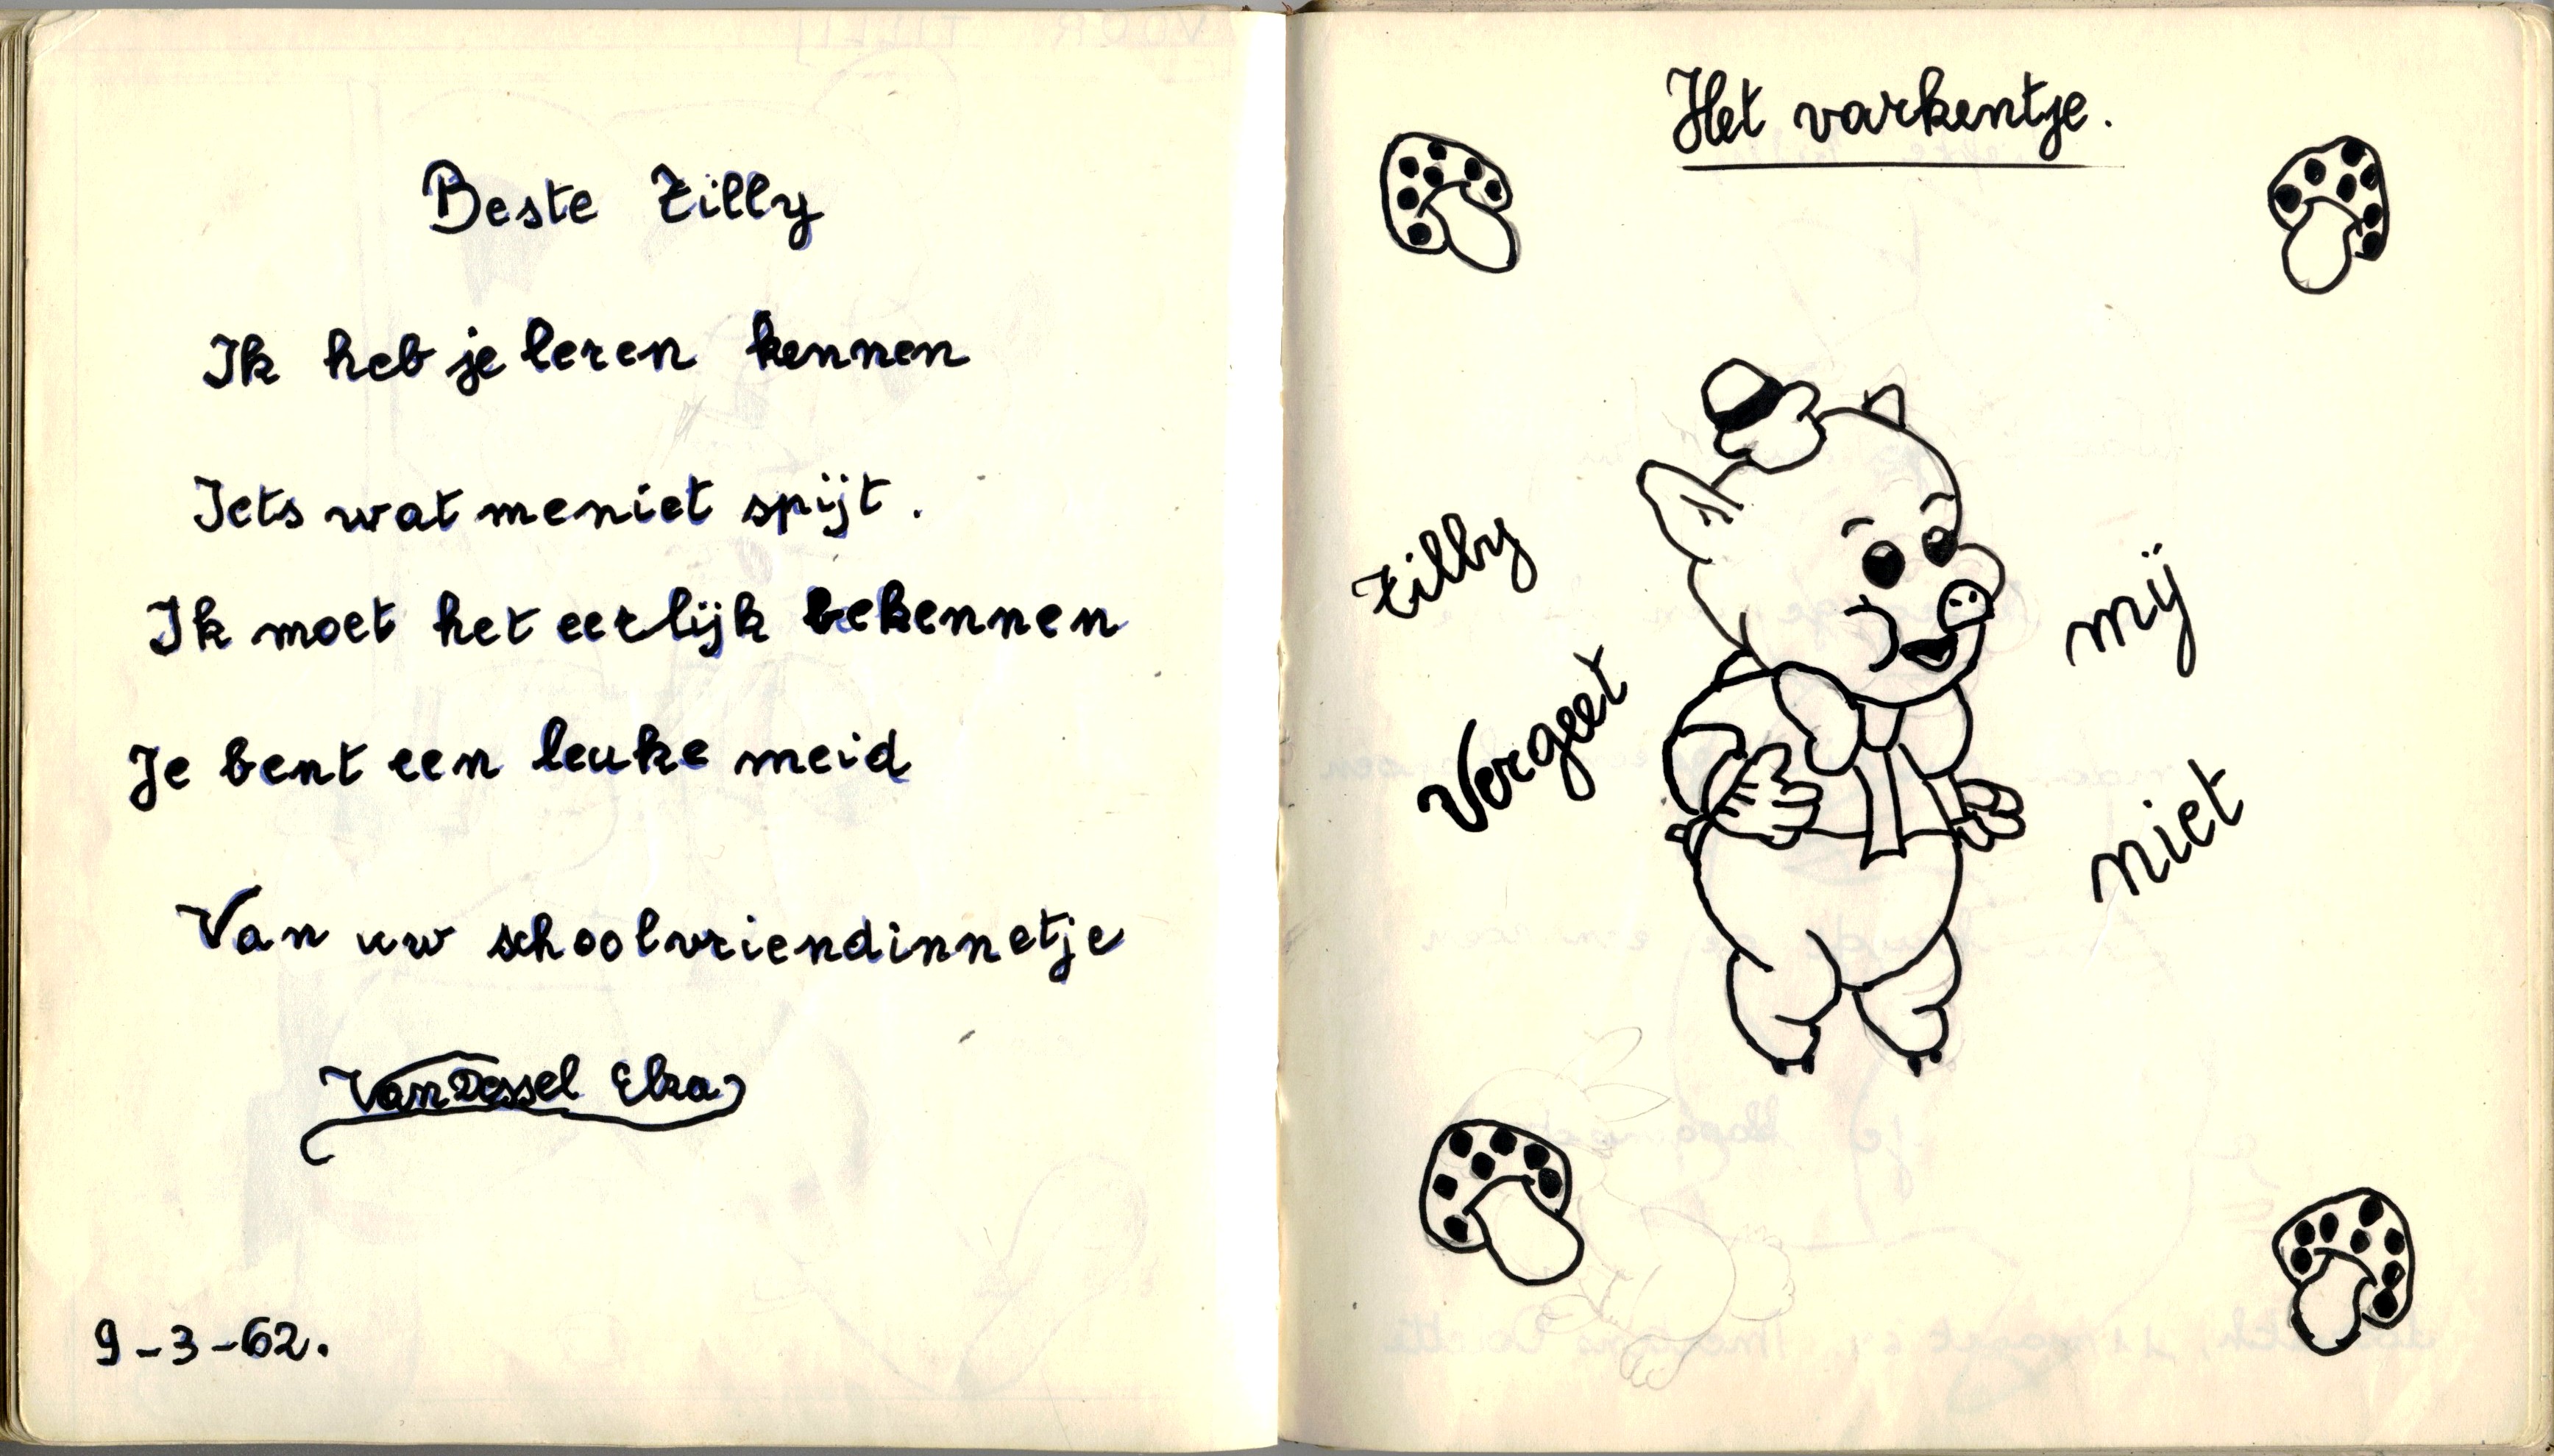 Beste Tilly
Ik heb je leren kennen
Iets wat me niet spijt.
Ik moet het eerlijk bekennen
Je bent een leuke meid
Van uw schoolvriendinnetje
Van Dessel Elza
9-3-62.
Het varkentje.
Tilly
Vergeet
mij
niet